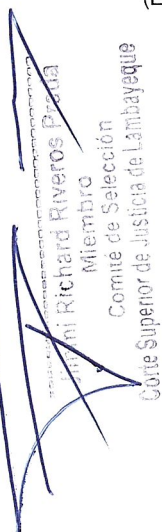 Richard Riveros
Miembro
Comité de Selección
Corte Superior de Justicia de Lambayeque